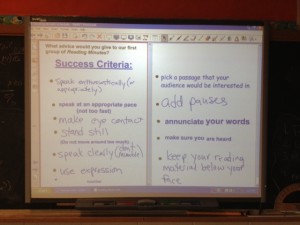 What advice would you give to our first
group of Reading Minutes?
Success Criteria:
speak enthusiastically (or
appropriately)
speak at an appropriate pace
(not too fast)
make eye contact
stand still
(Do not move around too much)
speak clearly (don't
mumble)
use expression
pick a passage that your
audience would be interested in
add pauses
annunciate your words
make sure you are heard
keep your reading
material below your
face